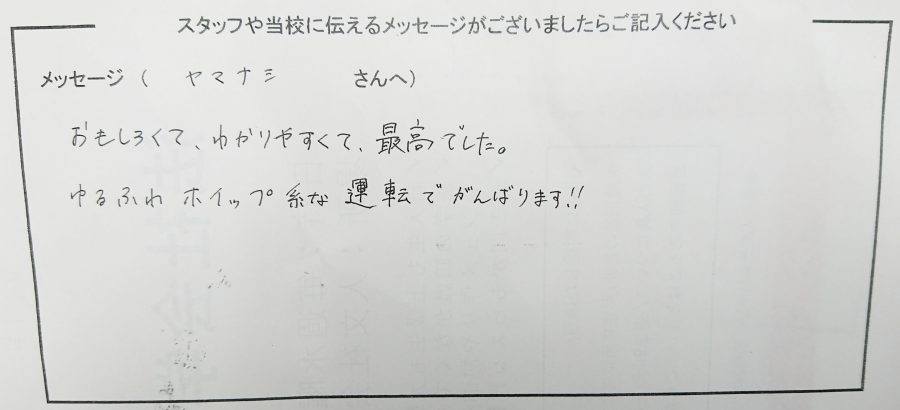 スタッフや当校に伝えるメッセージがございましたらご記入ください
メッセージ ( ヤマナシ さんへ)
おもしろくて、わかりやすくて、最高でした。
ゆるふわ ホイップ系な 運転で がんばります!!